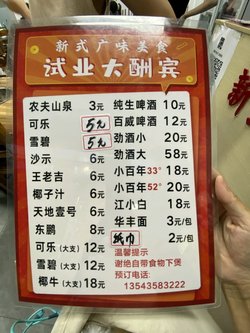 新式广味美食
试业大酬宾
农夫山泉 3元
可乐 5元
雪碧 5元
沙示 6元
王老吉 6元
椰子汁 6元
天地壹号 6元
东鹏 8元
可乐(大支) 12元
雪碧(大支) 12元
椰牛(大支) 18元
纯生啤酒 10元
百威啤酒 12元
劲酒小 20元
劲酒大 58元
小百年33° 18元
小百年52° 20元
江小白 18元
华丰面 3元/包
纸巾 2元/包
温馨提示
谢绝自带食物下煲
预订电话:
13543583222